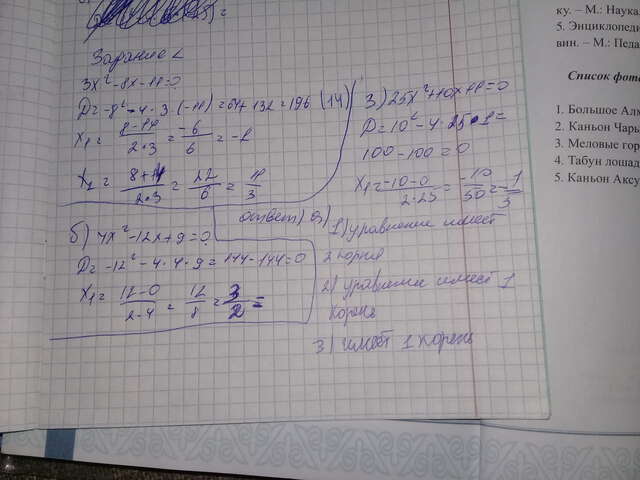 Задание 2
3x² - 8x - 11 = 0
D = -8² - 4 · 3 · (-11) = 64 + 132 = 196 (14)
x₁ = 8-14 / 2·3 = -6/6 = -1
x₂ = 8+14 / 2·3 = 22/6 = 11/3
б) 4x² - 12x + 9 = 0
D = -12² - 4 · 4 · 9 = 144 - 144 = 0
x₁ = 12-0 / 2-4 = 12/8 = 3/2 =
3) 25x² + 10x + 1 = 0
D = 10² - 4 · 25 · 1 =
100 - 100 = 0
x₁ = -10-0 / 2·25 = -10/50 = -1/5
ответ)
1) уравнение имеет
2 корня
2) уравнение имеет 1
корень
3) имеет 1 корень
ку. – М.: Наука
5. Энциклопеди
вин. – М.: Педа
Список фото
1. Большое Алм
2. Каньон Чары
3. Меловые гор
4. Табун лошад
5. Каньон Аксу